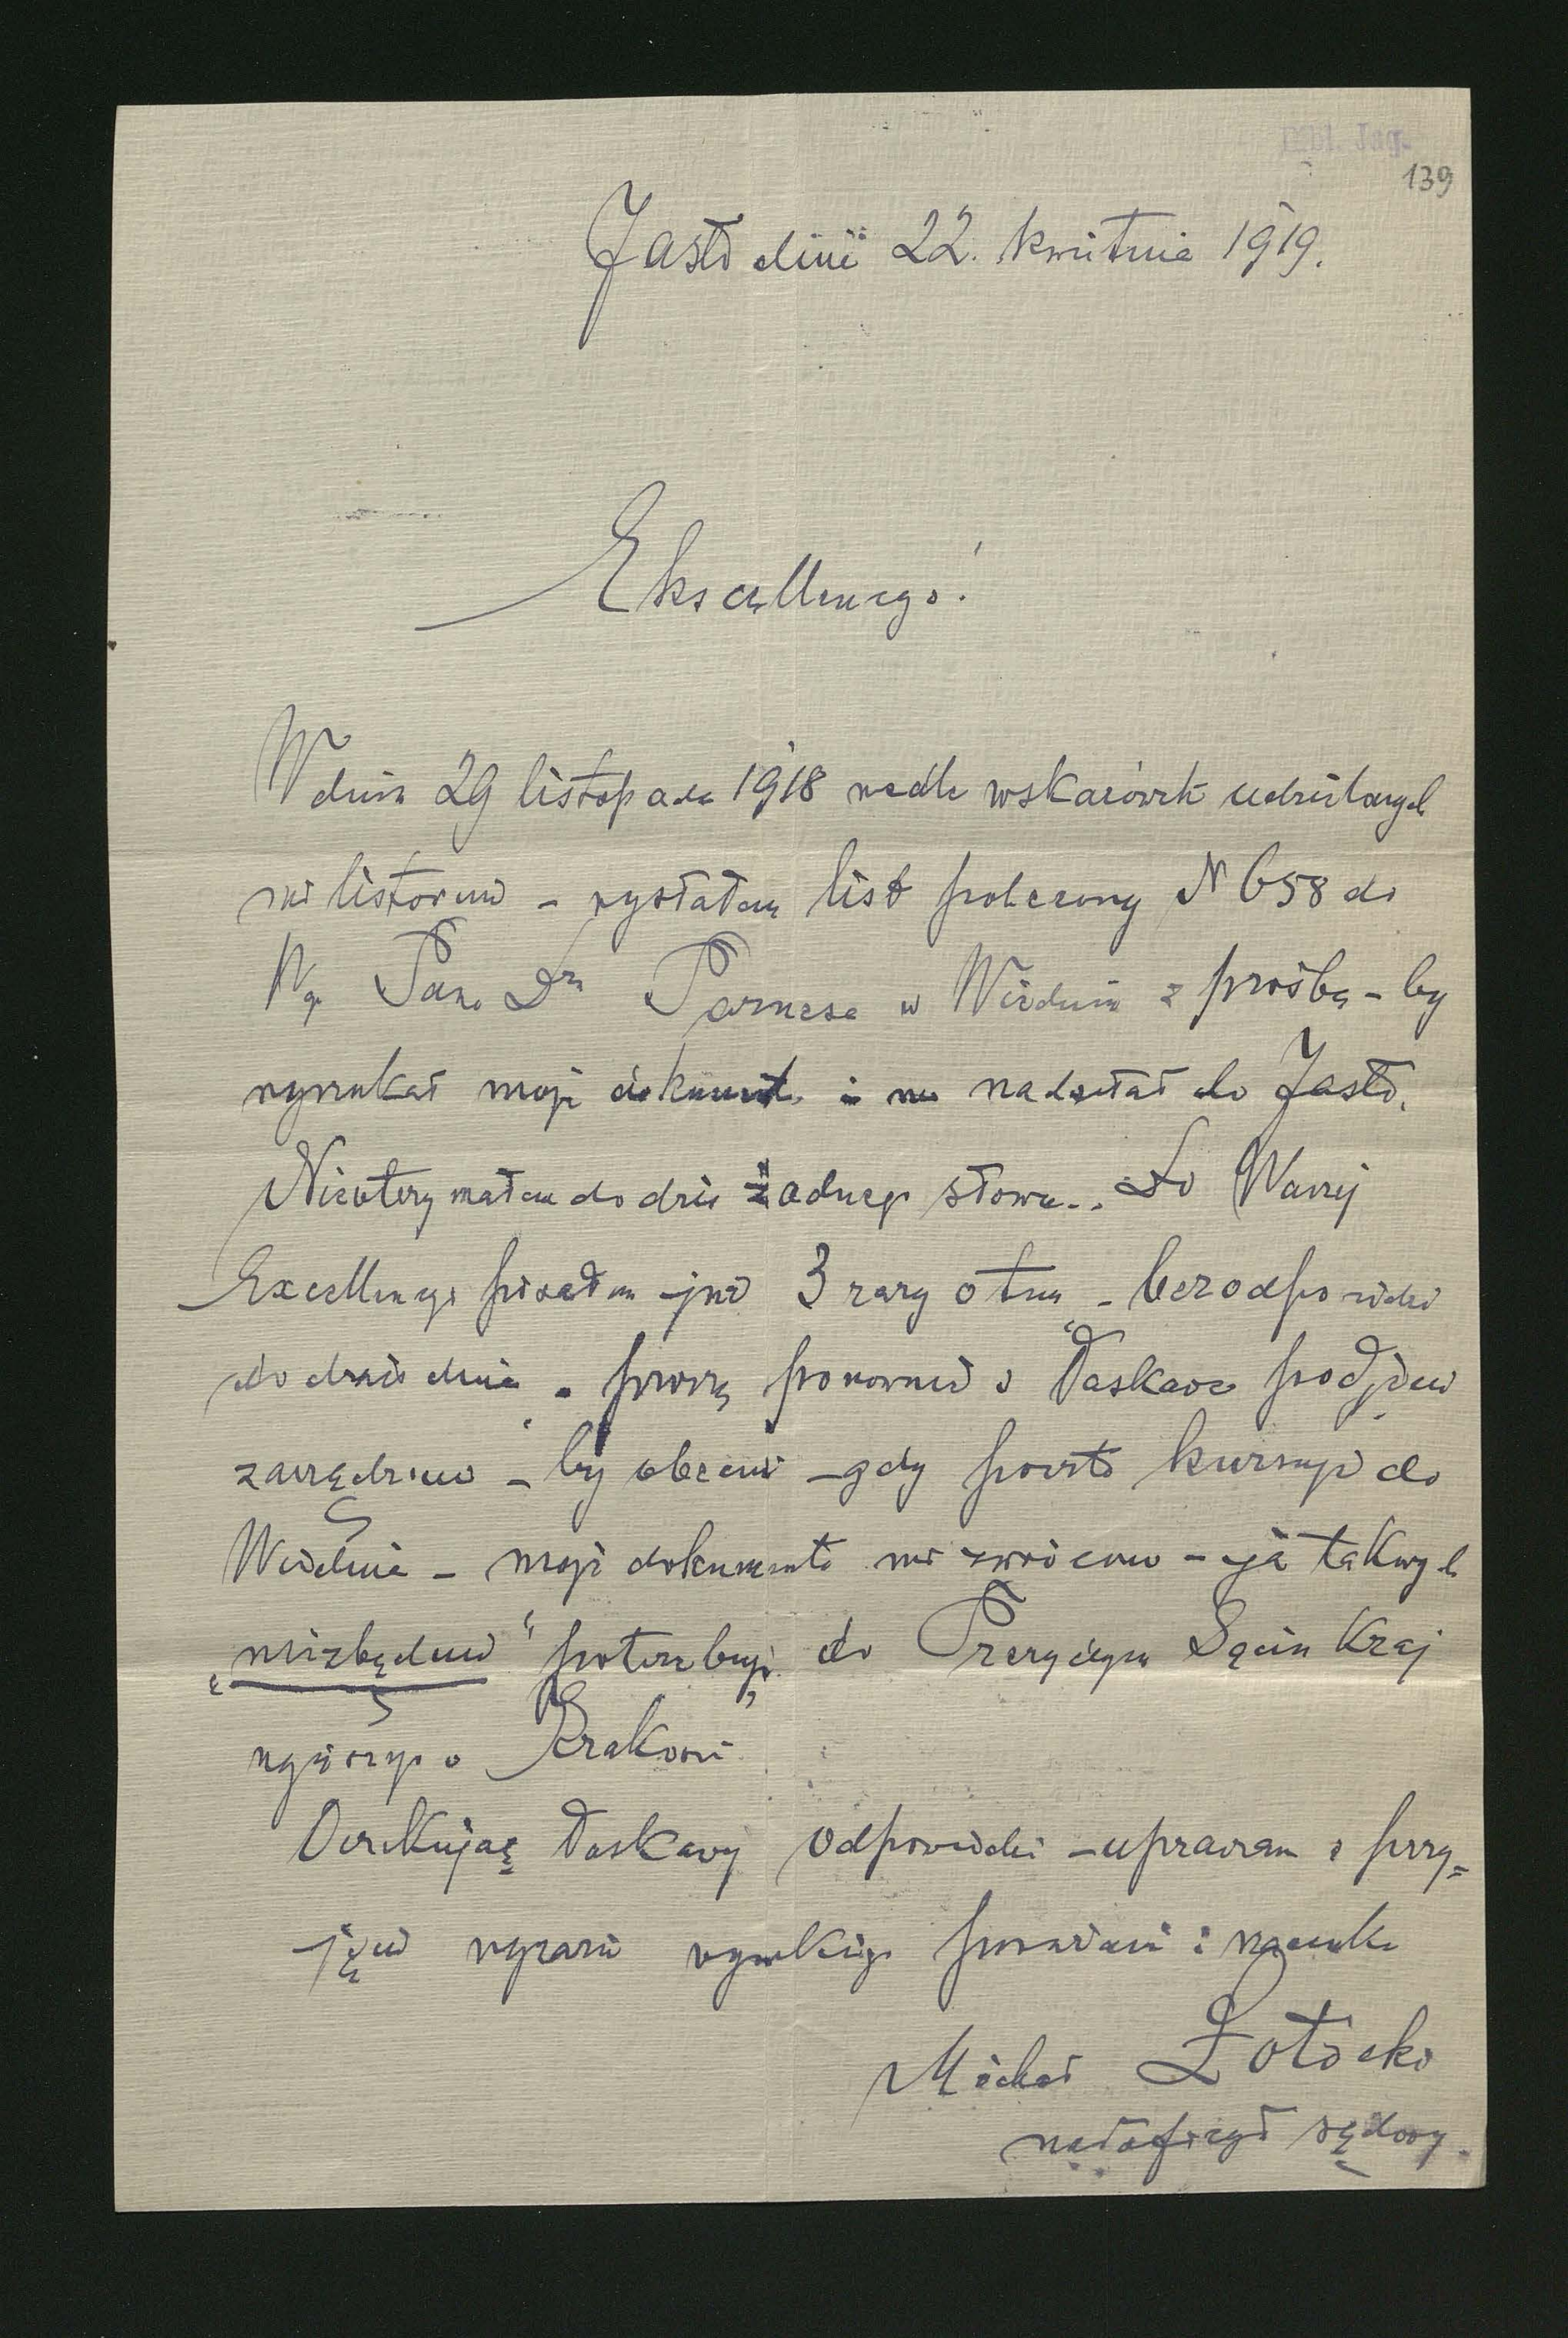 Bibl. Jag.
139
Jasło dnia 22. kwietnia 1919.
Ekscellencyo!
W dniu 29 listopada 1918 wedle wskazówek udzielonych
mi listownie – wysłałem list polecony N 658 do
Wgo Pana Dra Parnesa w Wiedniu z prośbą – by
wyszukał moje dokumenta i mi nadesłał do Jasła.
Nieotrzymałem do dziś żadnego słowa.. Do Waszej
Excellencyi pisałem już 3 razy o tem – bez odpowiedzi
do dziś dnia. proszę ponownie o łaskawe podjęcie
zarządzenia – by obecnie – gdy poczta kursuje do
Wiednia – moje dokumenta mi zwrócono – ja takowych
„niezbędnie" potrzebuję do Prezydyum Sądu Kraj
wyższego Krakowie
Oczekując łaskawej odpowiedzi – upraszam o przy=
jęcie wyrazów wysokiego poważania i szacunku
Michał Łotocki
nadoficyał sądowy.